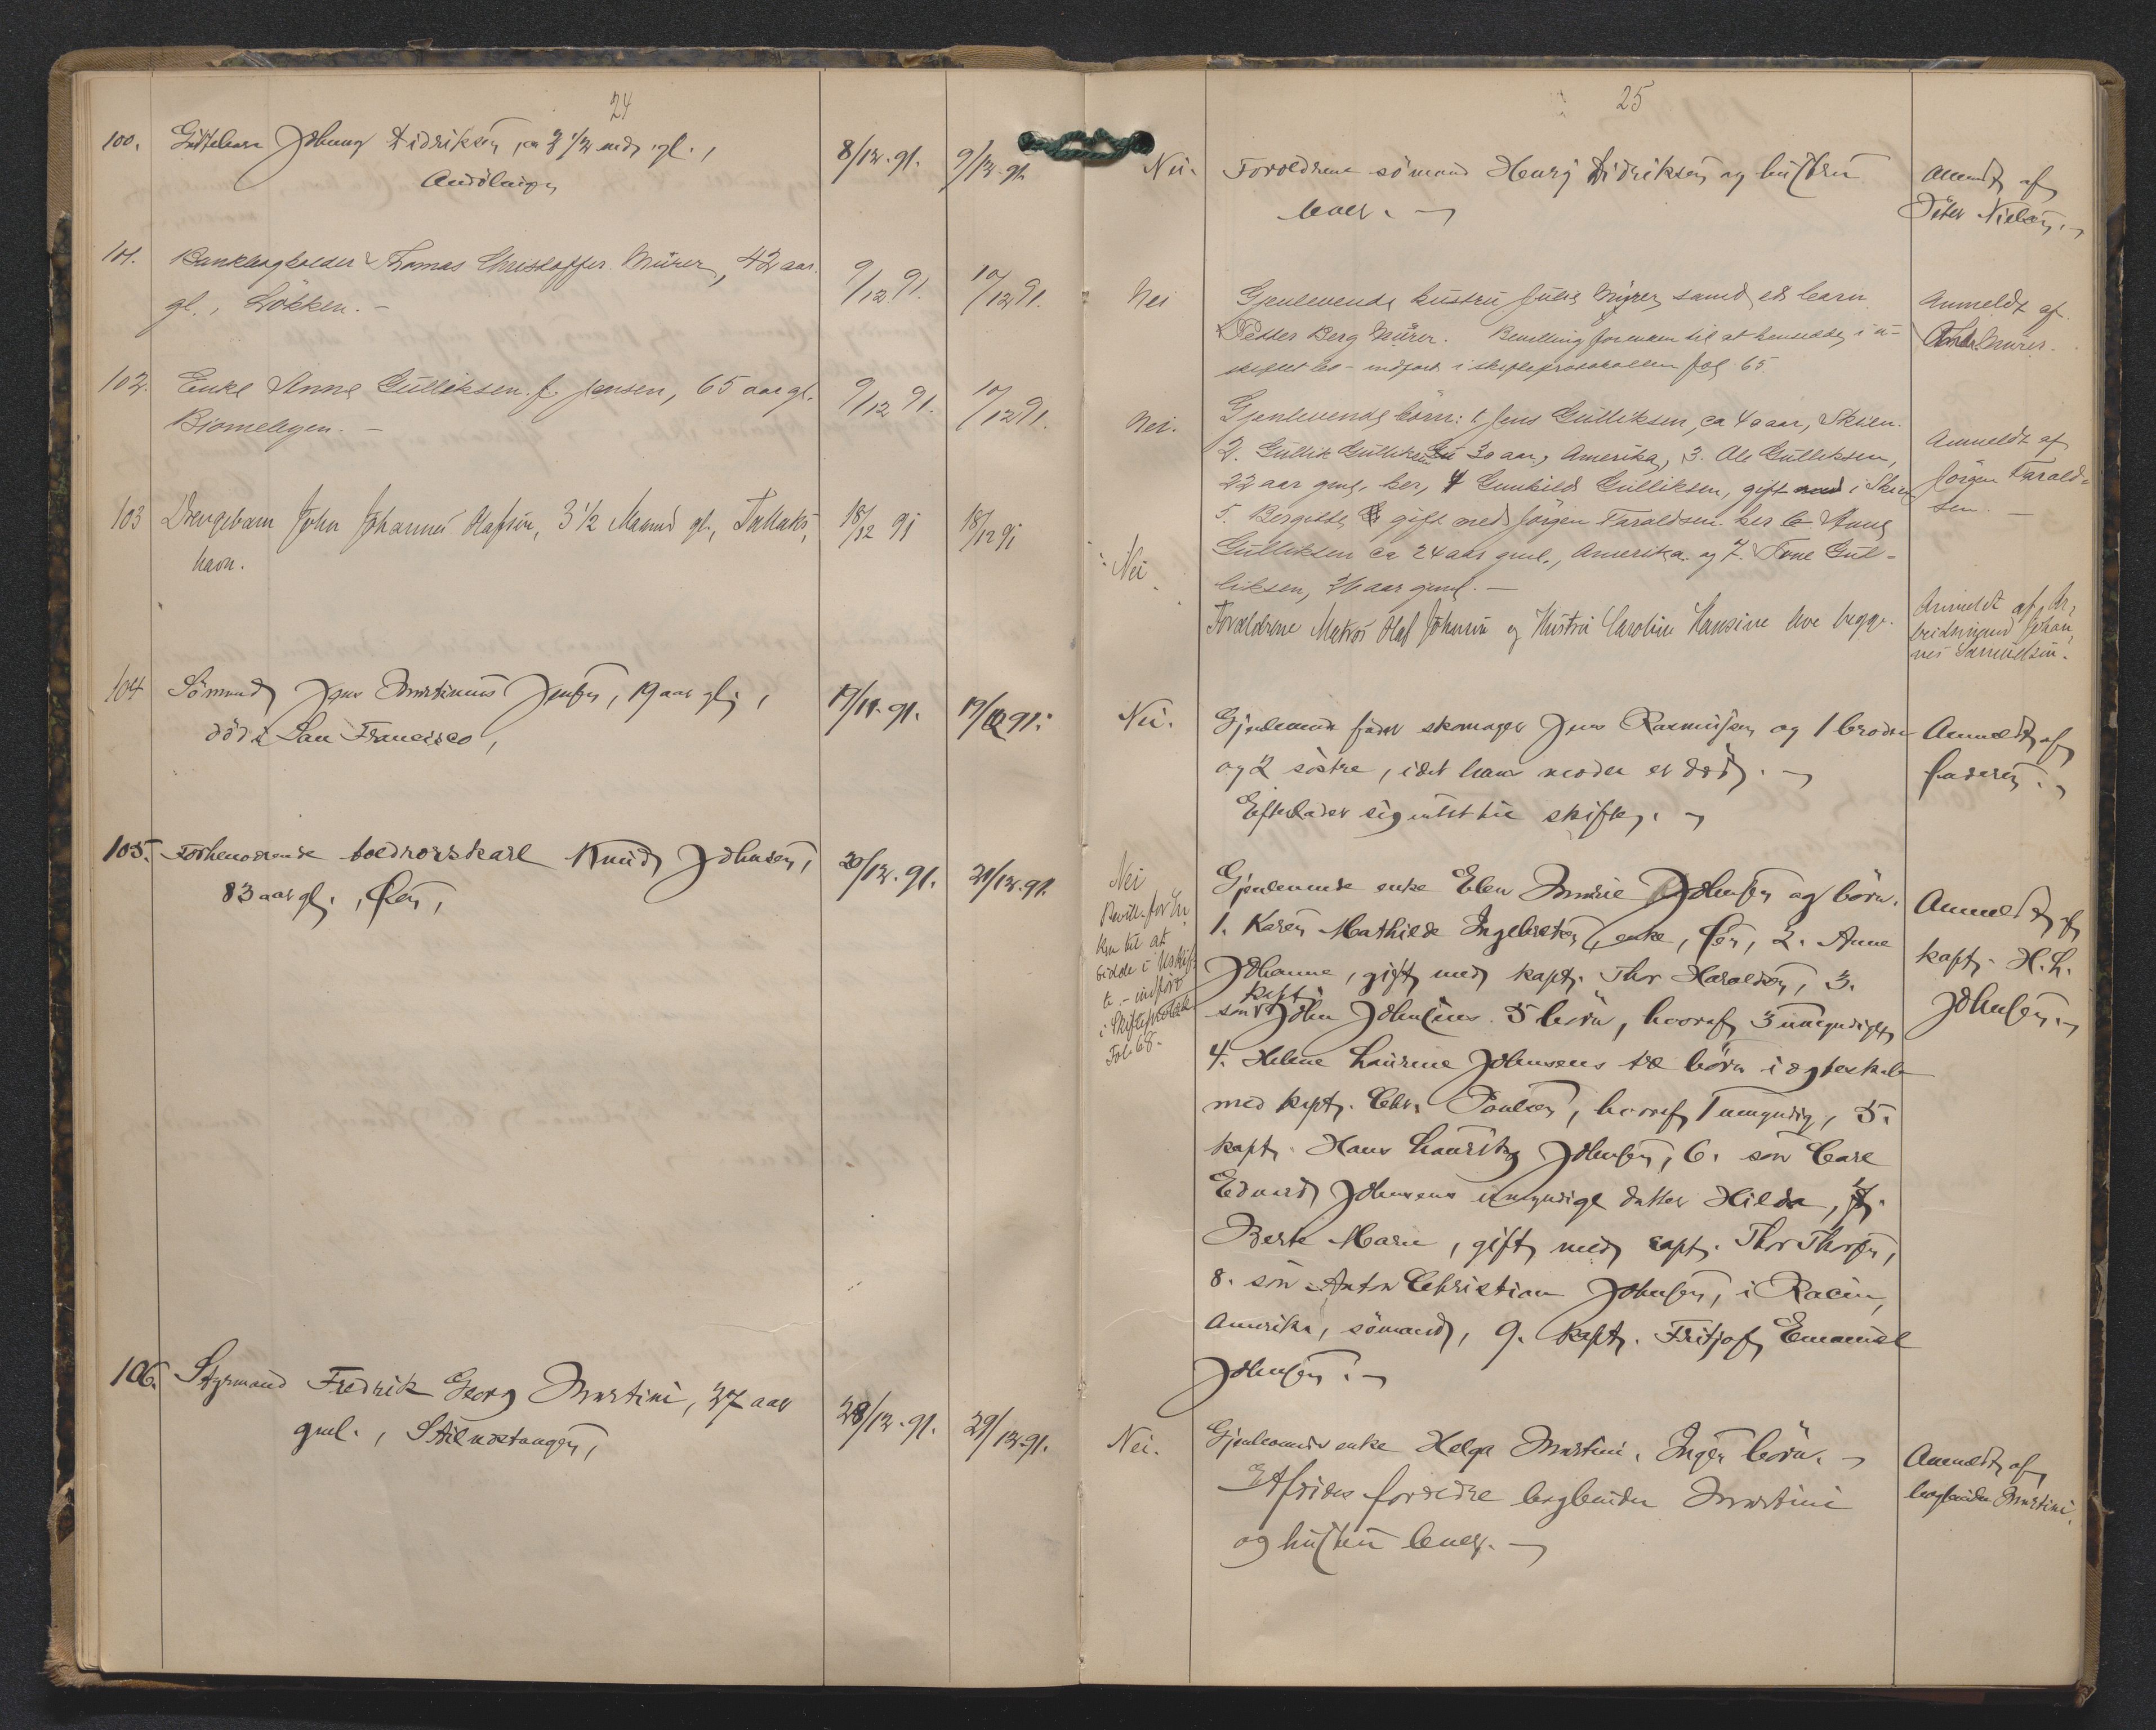 24
100. Johnny Didriksen, ca 2 1/2 mdr. gl.,
8/12.91. 9/12.91.
101. Bankbogholder Thomas Christoffer Mürer, 42 aar
gl., Løkken. -
9/12 91. 10/12 91.
102. Enke Anne Gulliksen f. Jensen, 65 aar gl.
9/12 91. 10/12 91.
103 Drengebarn John Johannes Olafsen, 3 1/2 Maaned gl., Tallaks,
havn.
18/12 91 18/12 91
104 Sømand Jens Martinius Jensen, 19 aar gl.,
død i San Francisco,
19/11.91. 19/12 91.
105. Forhenværende toldrorskarl Knud Johnsen,
83 aar gl., Øen,
20/12.91. 21/12.91.
106. Styrmand Fredrik Georg Martini, 37 aar
gml., Stilnestangen,
28/12.91. 29/12.91.
25
Nei. Forældrene sømand Henry Didriksen og hustru
lever. -
Anmeldt af
Peter Nielsen. -
Nei Gjenlevende hustru Julie Mürer samt et barn
Petter Berg Mürer. Bevilling for enken til at hensidde i u-
skiftet bo - indført i skifteprotokollen fol 65.
Anmeldt af
Mürer.
Nei. Gjenlevende børn: 1. Jens Gulliksen, ca 40 aar, Skien.
2. Gullik Gulliksen 30 aar, Amerika, 3. Ole Gulliksen,
22 aar gml. her, 4 Gunhild Gulliksen, gift i Skien
5. Bergitte gift med Jørgen Taraldsen her 6 Anne
Gulliksen ca 24 aar gml., Amerika og 7. Tone Gul-
liksen, 26 aar gml. -
Anmeldt af
Jørgen Tarald-
sen. -
Nei
Forældrene Matros Olaf Johnsen og Hustru Caroline Hansine leve begge.
Anmeldt af Ar,
beidsmand Johan,
nes Samuelsen.
Nei. Gjenlevende fader skomager Jens Rasmussen og 1 broder
og 2 søstre, idet hans moder er død. -
Efterlader sig intet til skifte. -
Anmeldt af
faderen. -
Nei
Bevill. for En,
ken til at
sidde i Uskif-
te. - indført
i Skifteprotok
Fol. 68.
Gjenlevende enke Elen Marie Johnsen og børn.
1. Karen Mathilde Ingebretsen, enke, Øen, 2. Anne
Johanne, gift med kapt. Thor Haraldsen, 3.
søn kapt. John Johnsens 5 børn, hvoraf 3 umyndige,
4. Helene Laurine Johnsens to børn i ægteskab
med kapt. Chr. Poulsen, hvoraf 1 umyndig, 5.
kapt. Hans Lauritz Johnsen, 6. søn Carl
Eduard Johnsens umyndige datter Hilda, 7.
Berte Marie, gift med capt. Thor Thorsen,
8. søn Anton Christian Johnsen, i Racin,
Amerika, sømand, 9. kapt. Fritjof Emanuel
Johnsen. -
Anmeldt af
kapt. H. L.
Johnsen. -
Nei. Gjenlevende enke Helga Martini. Ingen børn. -
Afdødes forældre bogbinder Martini
og hustru lever. -
Anmeldt af
bogbinder Martini.